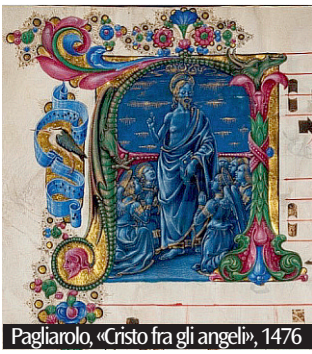 Pagliarolo, «Cristo fra gli angeli», 1476